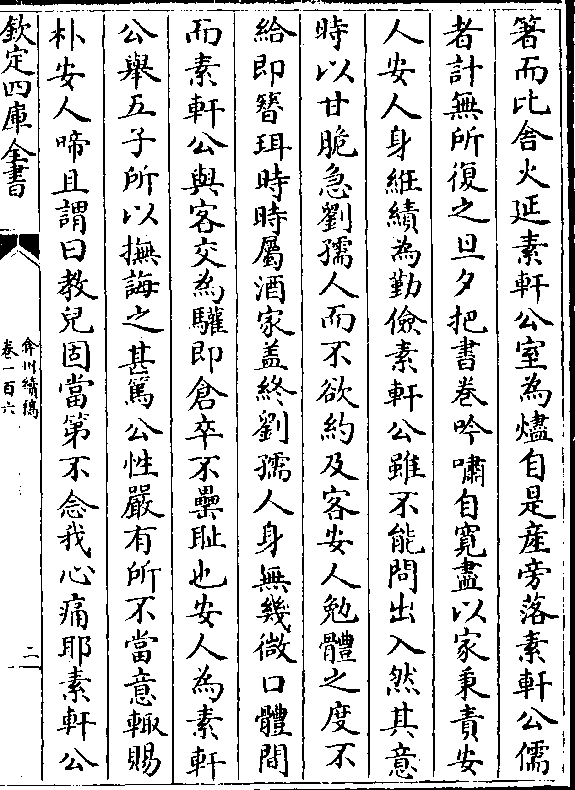 箸而比舍火延素軒公室為燼自是産旁落素軒公儒
者計無所復之旦夕把書卷吟嘯自寛盡以家秉責安
人安人身絍績為勤儉素軒公雖不能問出入然其意
時以甘脆急劉孺人而不欲約及客安人勉體之度不
給即簪珥時時屬酒家盖終劉孺人身無幾微口體間
而素軒公與客交為驩即倉卒不罍耻也安人為素軒
公舉五子所以撫誨之甚篤公性嚴有所不當意輙賜
朴安人啼且謂曰教兒固當第不念我心痛耶素軒公
欽定四庫全書
弇州續稿
卷一百六
二